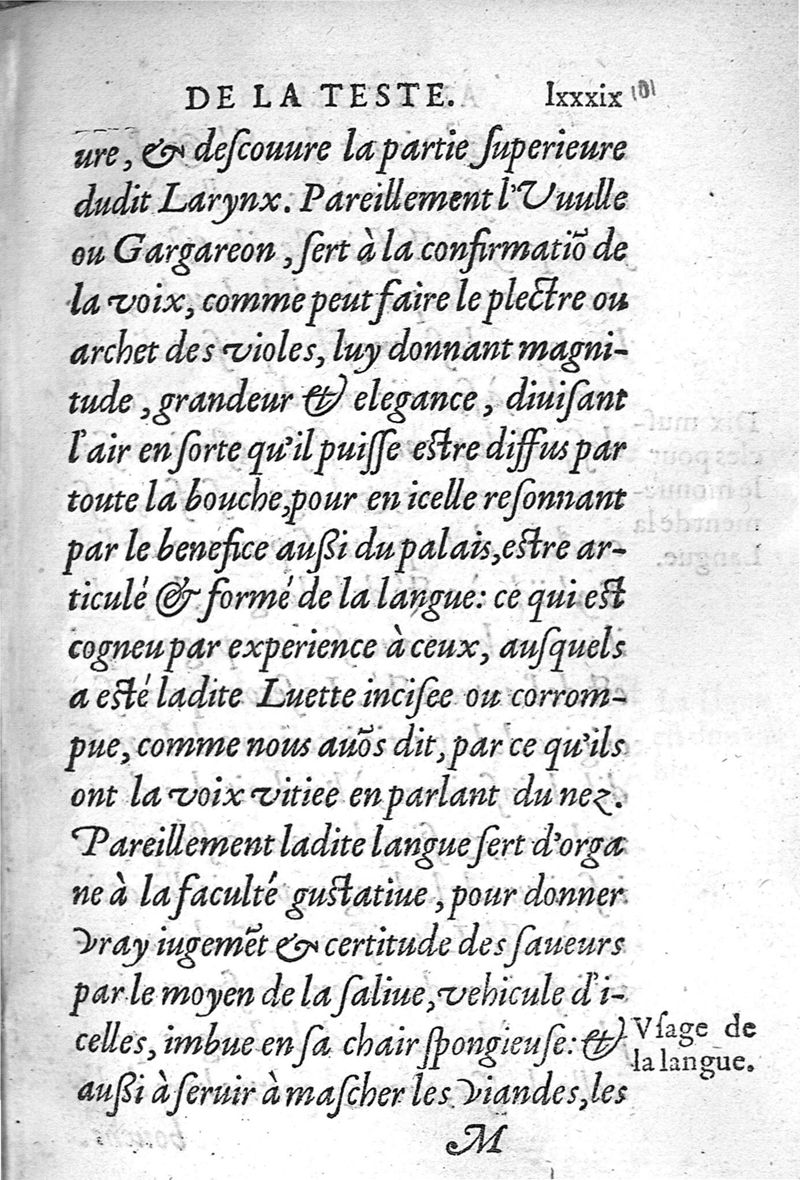 DE LA TESTE. lxxxix 101
ure, & deſcouure la partie ſuperieure
dudit Larynx. Pareillement l'Vuulle
ou Gargareon, ſert à la confirmatiõ de
la voix, comme peut faire le plectre ou
archet des violes, luy donnant magni-
tude, grandeur & elegance, diuiſant
l'air en ſorte qu'il puiſſe eſtre diffus par
toute la bouche, pour en icelle reſonnant
par le benefice außi du palais, eſtre ar-
ticulé & formé de la langue: ce qui eſt
cogneu par experience à ceux, auſquels
a eſté ladite Luette inciſee ou corrom-
pue, comme nous auõs dit, par ce qu'ils
ont la voix vitiee en parlant du nez.
Pareillement ladite langue ſert d'orga
ne à la faculté guſtatiue, pour donner
vray iugemẽt & certitude des ſaueurs
par le moyen de la ſaliue, vehicule d'i-
celles, imbue en ſa chair ſpongieuſe: &
außi à ſeruir à maſcher les viandes, les
Vſage de
la langue.
M